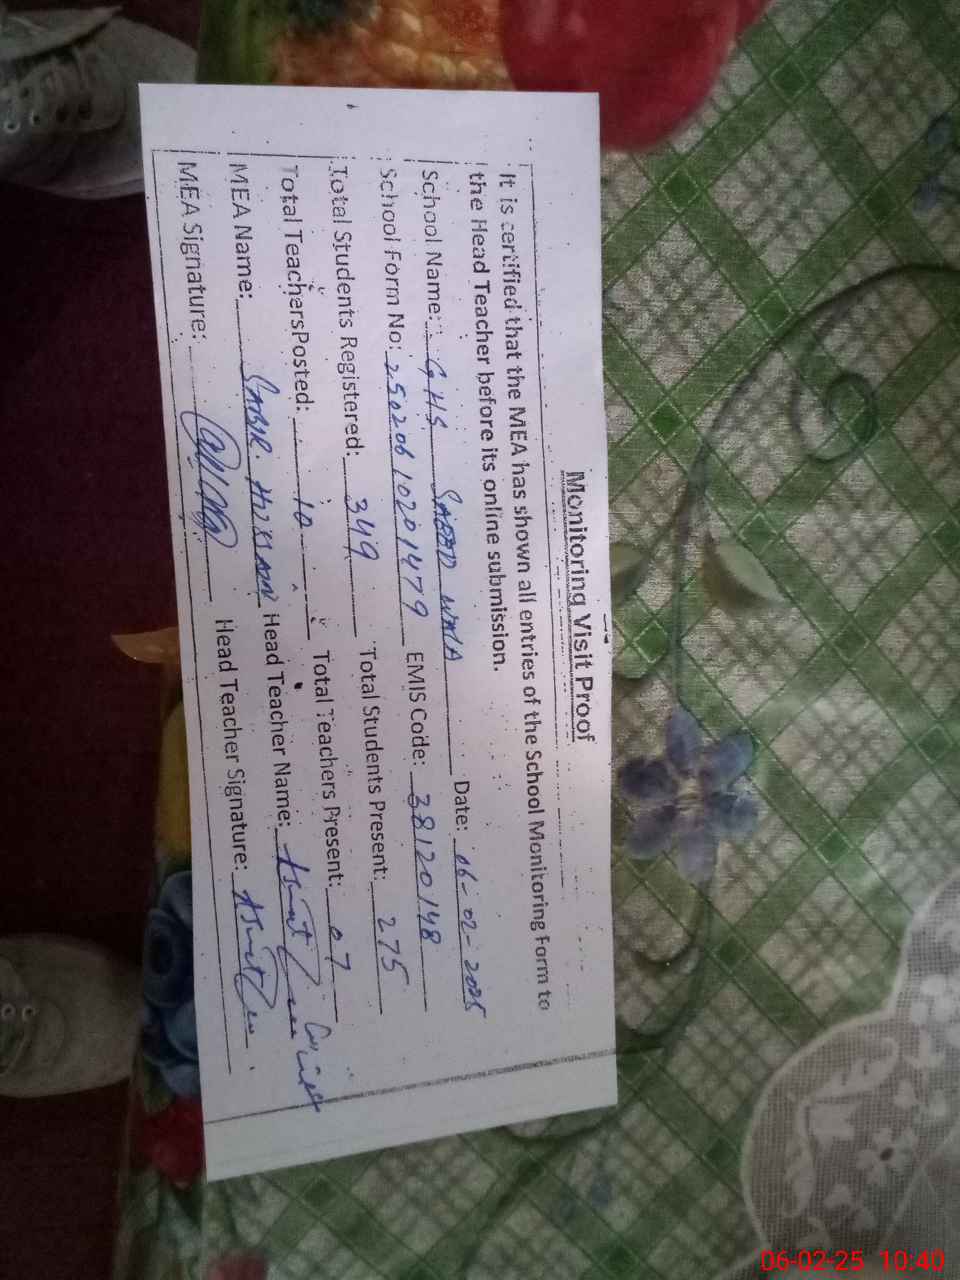 Monitoring Visit Proof
It is certified that the MEA has shown all entries of the School Monitoring Form to
the Head Teacher before its online submission.
School Name: GHS Date: 06-02-2025
School Form No: 25020610201479 EMIS Code: 38120148
Total Students Registered: 349 Total Students Present: 275
Total Teachers Posted: 10 Total Teachers Present: 07
MEA Name: SABIR Head Teacher Name:
MEA Signature: Head Teacher Signature:
06-02-25 10:40